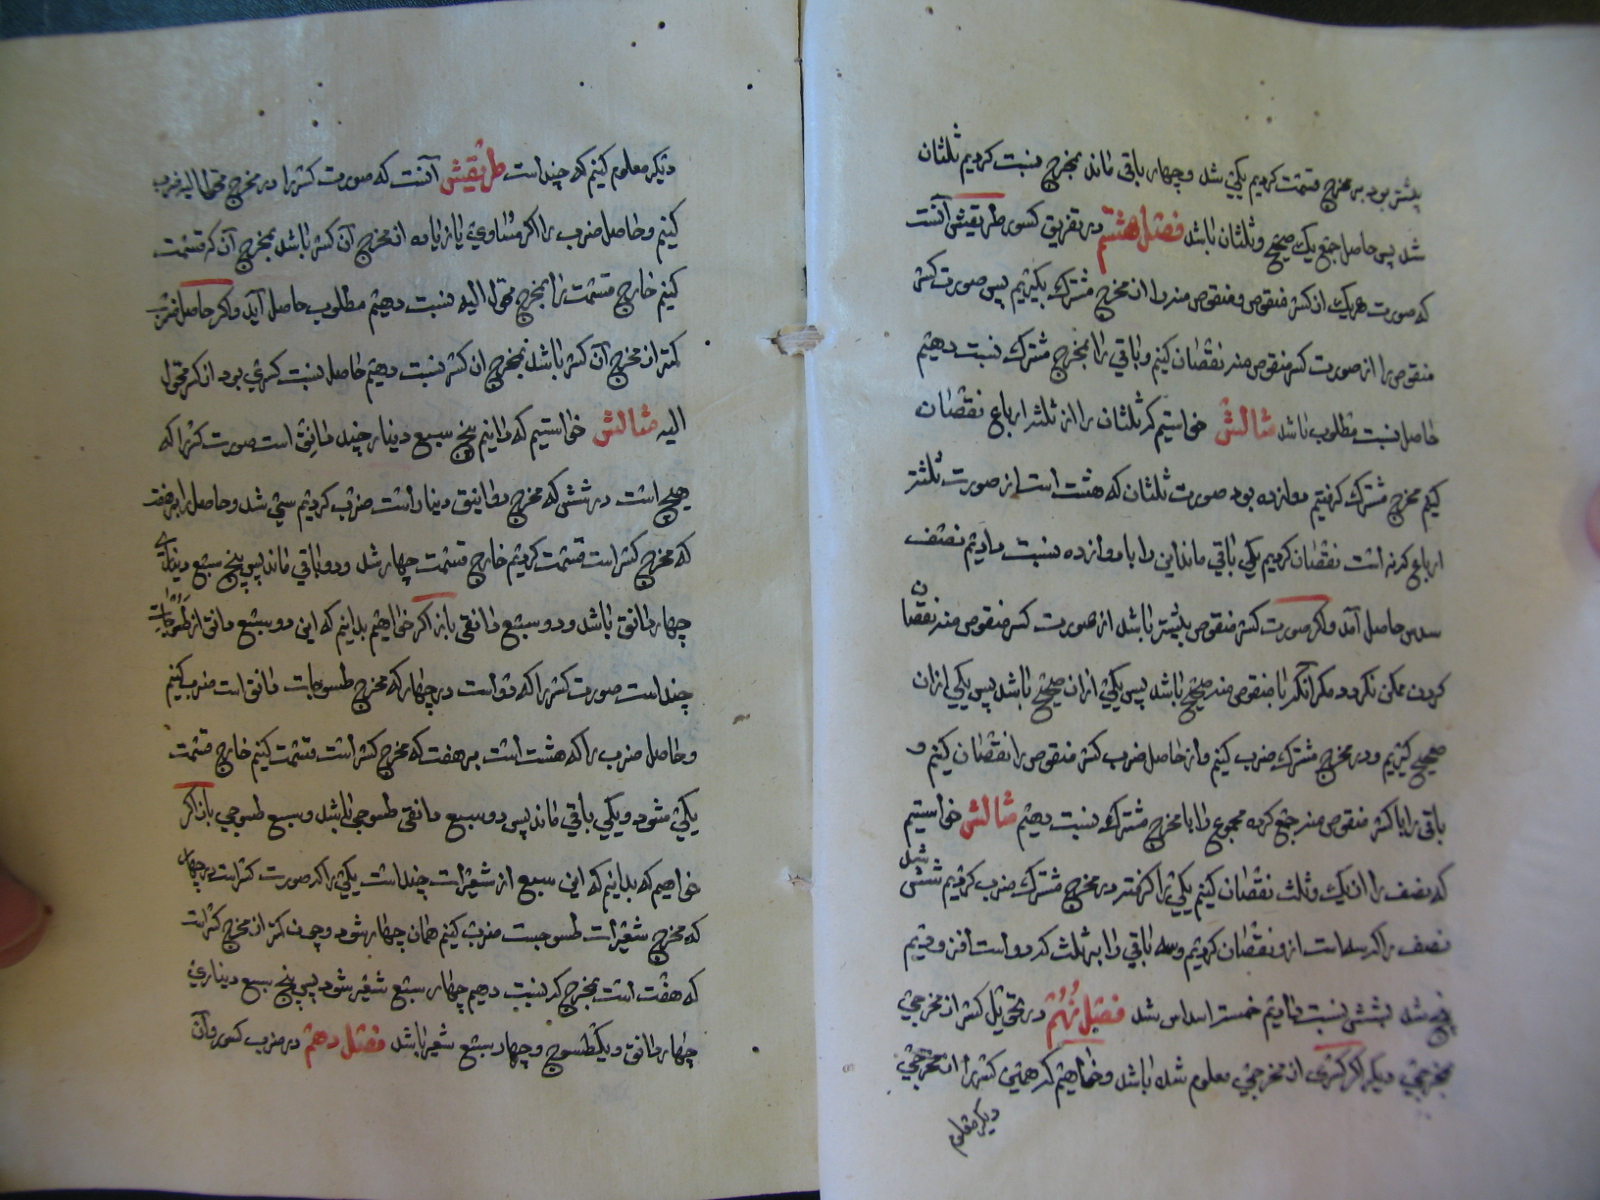 بیشتر بود بر مخرج قسمت کردیم یکی شد و چهار باقی ماند بمخرج نسبت کردیم ثلثان
شد پس حاصل جمع یک صحیح و ثلثان باشد فصل هشتم در تفریق کسور طریقش آنست
که صورت هر یک از کسر منقوص و منقوص منه را از مخرج مشترک بگیریم پس صورت کسر
منقوص را از صورت کسر منقوص منه نقصان کنیم و باقی را بمخرج مشترک نسبت دهیم
حاصل نسبت مطلوب باشد مثالش خواستیم که ثلثان را از ثلثه ارباع نقصان
کنیم مخرج مشترک گرفتیم دوازده بود صورت ثلثان که هشت است از صورت ثلثه
ارباع که نه است نقصان کردیم یکی باقی ماند این را با دوازده نسبت دادیم نصف
سدس حاصل آمد و اگر صورت کسر منقوص بیشتر باشد از صورت کسر منقوص منه نقصان
کردن ممکن نگردد مگر آنکه با منقوص منه صحیح باشد پس یکی ازان
صحیح گیریم و در مخرج مشترک ضرب کنیم و از حاصل ضرب کسر منقوص را نقصان کنیم و
باقی را با کسر منقوص منه جمع کرده مجموع را با مخرج مشترک نسبت دهیم مثالش خواستیم
که نصف را از یک و ثلث نقصان کنیم یکی را گرفته در مخرج مشترک ضرب کردیم شش شد
نصف را که سه است ازو نقصان کردیم و سه باقی را به ثلث که دو است افزودیم
پنج شد بشش نسبت دادیم خمسة اسداس شد فصل نهم در تحویل کسر از مخرجی
بمخرجی دیگر اگر کسری از مخرجی معلوم شده باشد و خواهیم که همین کسر را از مخرجی
دیگر معلوم
دیگر معلوم کنیم که چند است طریقش آنست که صورت کسر را در مخرج محول الیه ضرب
کنیم و حاصل ضرب را اگر مساوی یا زیاده از مخرج آن کسر باشد بمخرج آن کسر قسمت
کنیم خارج قسمت را بمخرج محول الیه نسبت دهیم مطلوب حاصل آید و اگر حاصل ضرب
کمتر از مخرج آن کسر باشد بمخرج آن کسر نسبت دهیم حاصل نسبت کسری بود از کسر محول
الیه مثالش خواستیم که دانیم پنج سبع دینار چند دانق است صورت کسر را که
پنج است در شش که مخرج دوانیق دینار است ضرب کردیم سی شد و حاصل را بر هفت
که مخرج کسر است قسمت کردیم خارج قسمت چهار شد و دو باقی ماند پس پنج سبع دیناری
چهار دانق باشد و دو سبع دانقی باز اگر خواهیم بدانیم که این دو سبع دانق از طسوجات
چند است صورت کسر را که دو است در چهار که مخرج طسوجات دانق است ضرب کنیم
و حاصل ضرب را که هشت است بر هفت که مخرج کسر است قسمت کنیم خارج قسمت
یکی شود و یکی باقی ماند پس دو سبع دانقی طسوجی باشد و سبع طسوجی باز اگر
خواهیم که بدانیم که این سبع از شعیرات چند است یکی را که صورت کسر است در چهار
که مخرج شعیرات طسوجست ضرب کنیم همان چهار شود و چون کمتر از مخرج کسر است
که هفت است بمخرج کسر نسبت دهیم چهار سبع شعیر شود پس پنج سبع دیناری
چهار دانق و یک طسوج و چهار سبع شعیر باشد فصل دهم در ضرب کسور و آن